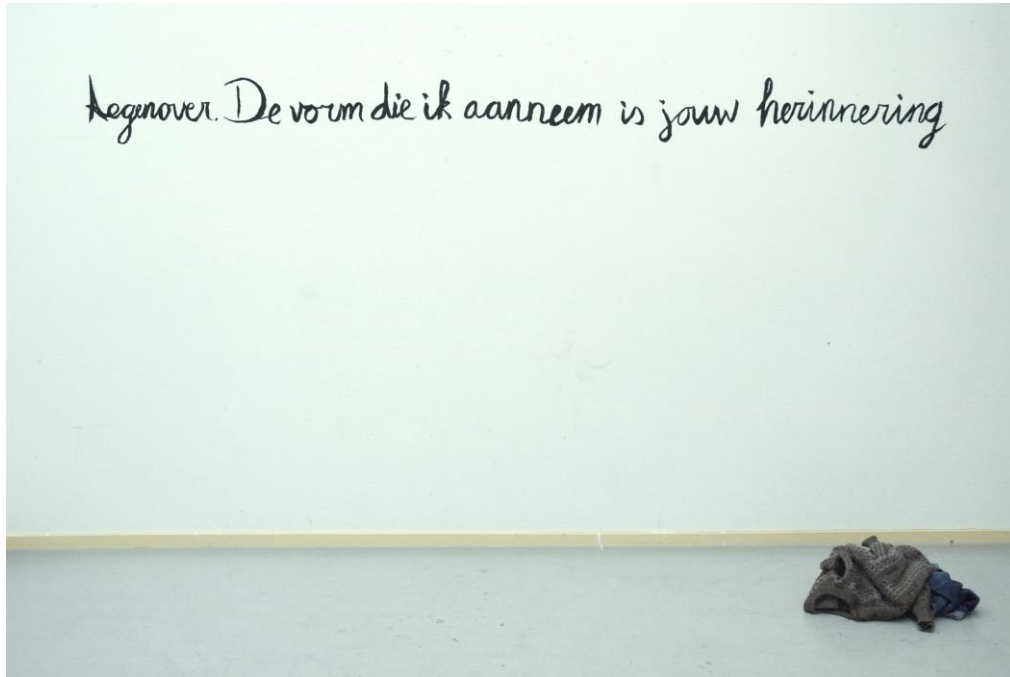 tegenover. De vorm die ik aanneem is jouw herinnering